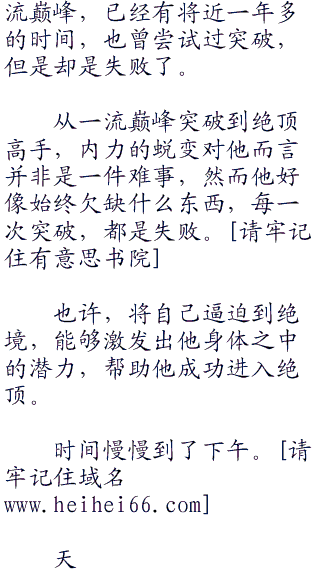 流巅峰，已经有将近一年多
的时间，也曾尝试过突破，
但是却是失败了。
从一流巅峰突破到绝顶
高手，内力的蜕变对他而言
并非是一件难事，然而他好
像始终欠缺什么东西，每一
次突破，都是失败。[请牢记
住有意思书院]
也许，将自己逼迫到绝
境，能够激发出他身体之中
的潜力，帮助他成功进入绝
顶。
时间慢慢到了下午。[请
牢记住域名
www.heihei66.com]
天